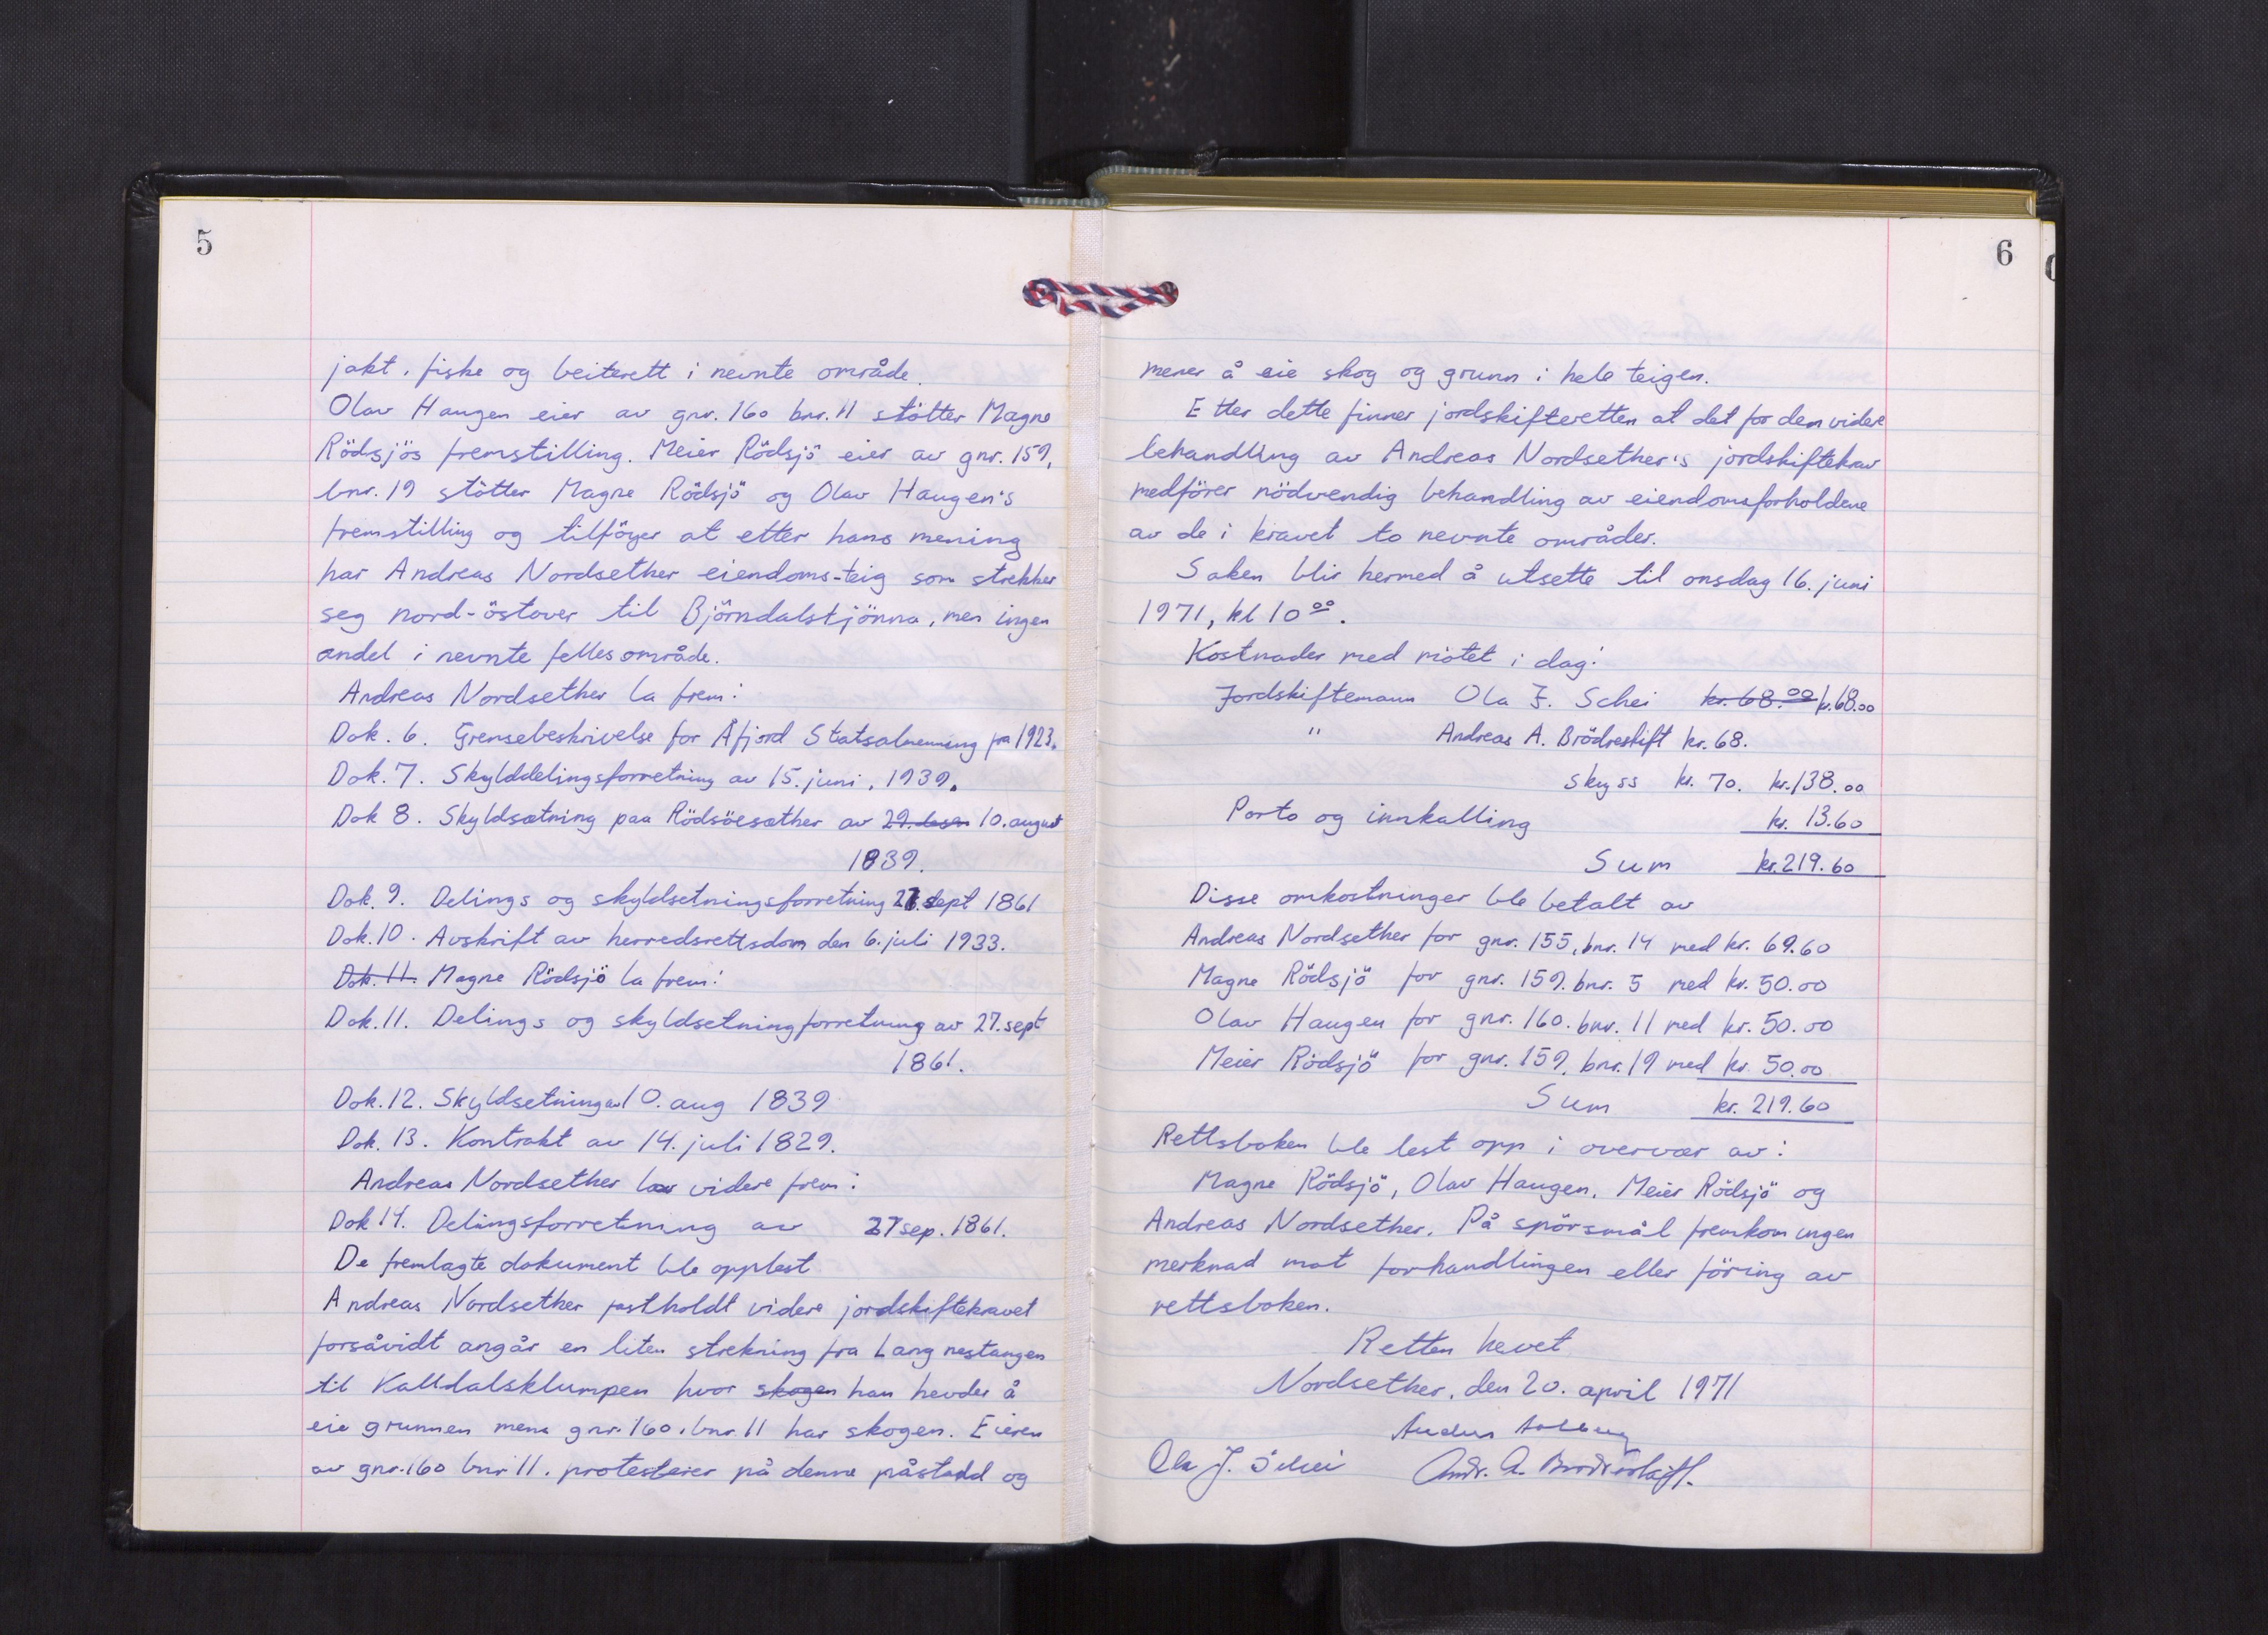 5
jakt, fiske og beiterett i nevnte område.
Olav Haugen eier av gnr. 160 bnr. 11 stötter Magne
Rödsjös fremstilling. Meier Rödsjö eier av gnr. 159,
bnr. 19 stötter Magne Rödsjö og Olav Haugen's
fremstilling og tilföyer at etter hans mening
har Andreas Nordsether eiendoms-teig som strekker
seg nord-östover til Björndalstjönna, men ingen
andel i nevnte felles område.
Andreas Nordsether la frem:
Dok. 6. Grensebeskrivelse for Åfjord Statsalmenning fra 1923.
Dok. 7. Skylddelingsforretning av 15. juni, 1939.
Dok 8. Skyldsætning paa Rödsöesæther av 29. desem 10. august
1839.
Dok. 9. Delings og skyldsetningsforretning 27. sept 1861
Dok. 10. Avskrift av herredsrettsdom den 6. juli 1933.
Dok. 11. Magne Rödsjö la frem:
Dok. 11. Delings og skyldsetningforretning av 27. sept
1861.
Dok. 12. Skyldsetning av 10. aug 1839
Dok. 13. Kontrakt av 14. juli 1829.
Andreas Nordsether la videre frem:
Dok 14. Delingsforretning av 27 sep. 1861.
De fremlagte dokument ble opplest
Andreas Nordsether fastholdt videre jordskiftekravet
forsåvidt angår en liten strekning fra Langnestangen
til Kalldalsklumpen hvor skogen han hevder å
eie grunnen mens gnr. 160, bnr. 11 har skogen. Eieren
av gnr. 160 bnr 11. protesterer på denne påstadd og
6
mener å eie skog og grunn i hele teigen.
Etter dette finner jordskifteretten at det for den videre
behandling av Andreas Nordsether's jordskiftekrav
medförer nödvendig behandling av eiendomsforholdene
av de i kravet to nevnte områder.
Saken blir hermed å utsette til onsdag 16. juni
1971, kl 10 00.
Kostnader med mötet i dag:
Jordskiftemann Ola J. Schei kr. 68.00 kr. 68.00
" Andreas A. Brödreskift kr. 68.
skyss kr. 70. kr. 138.00
Porto og innkalling kr. 13.60
Sum kr. 219.60
Disse omkostninger ble betalt av
Andreas Nordsether for gnr. 155, bnr. 14 med kr. 69.60
Magne Rödsjö for gnr. 159. bnr. 5 med kr. 50.00
Olav Haugen for gnr. 160. bnr. 11 med kr. 50.00
Meier Rödsjö for gnr. 159, bnr. 19 med kr. 50.00
Sum kr. 219.60
Rettsboken ble lest opp i overvær av:
Magne Rödsjö, Olav Haugen, Meier Rödsjö og
Andreas Nordsether. På spörsmål fremkom ingen
merknad mot forhandlingen eller föring av
rettsboken.
Retten hevet
Nordsether, den 20. april 1971
Ola J. Schei Andr. A. Brödreskift.